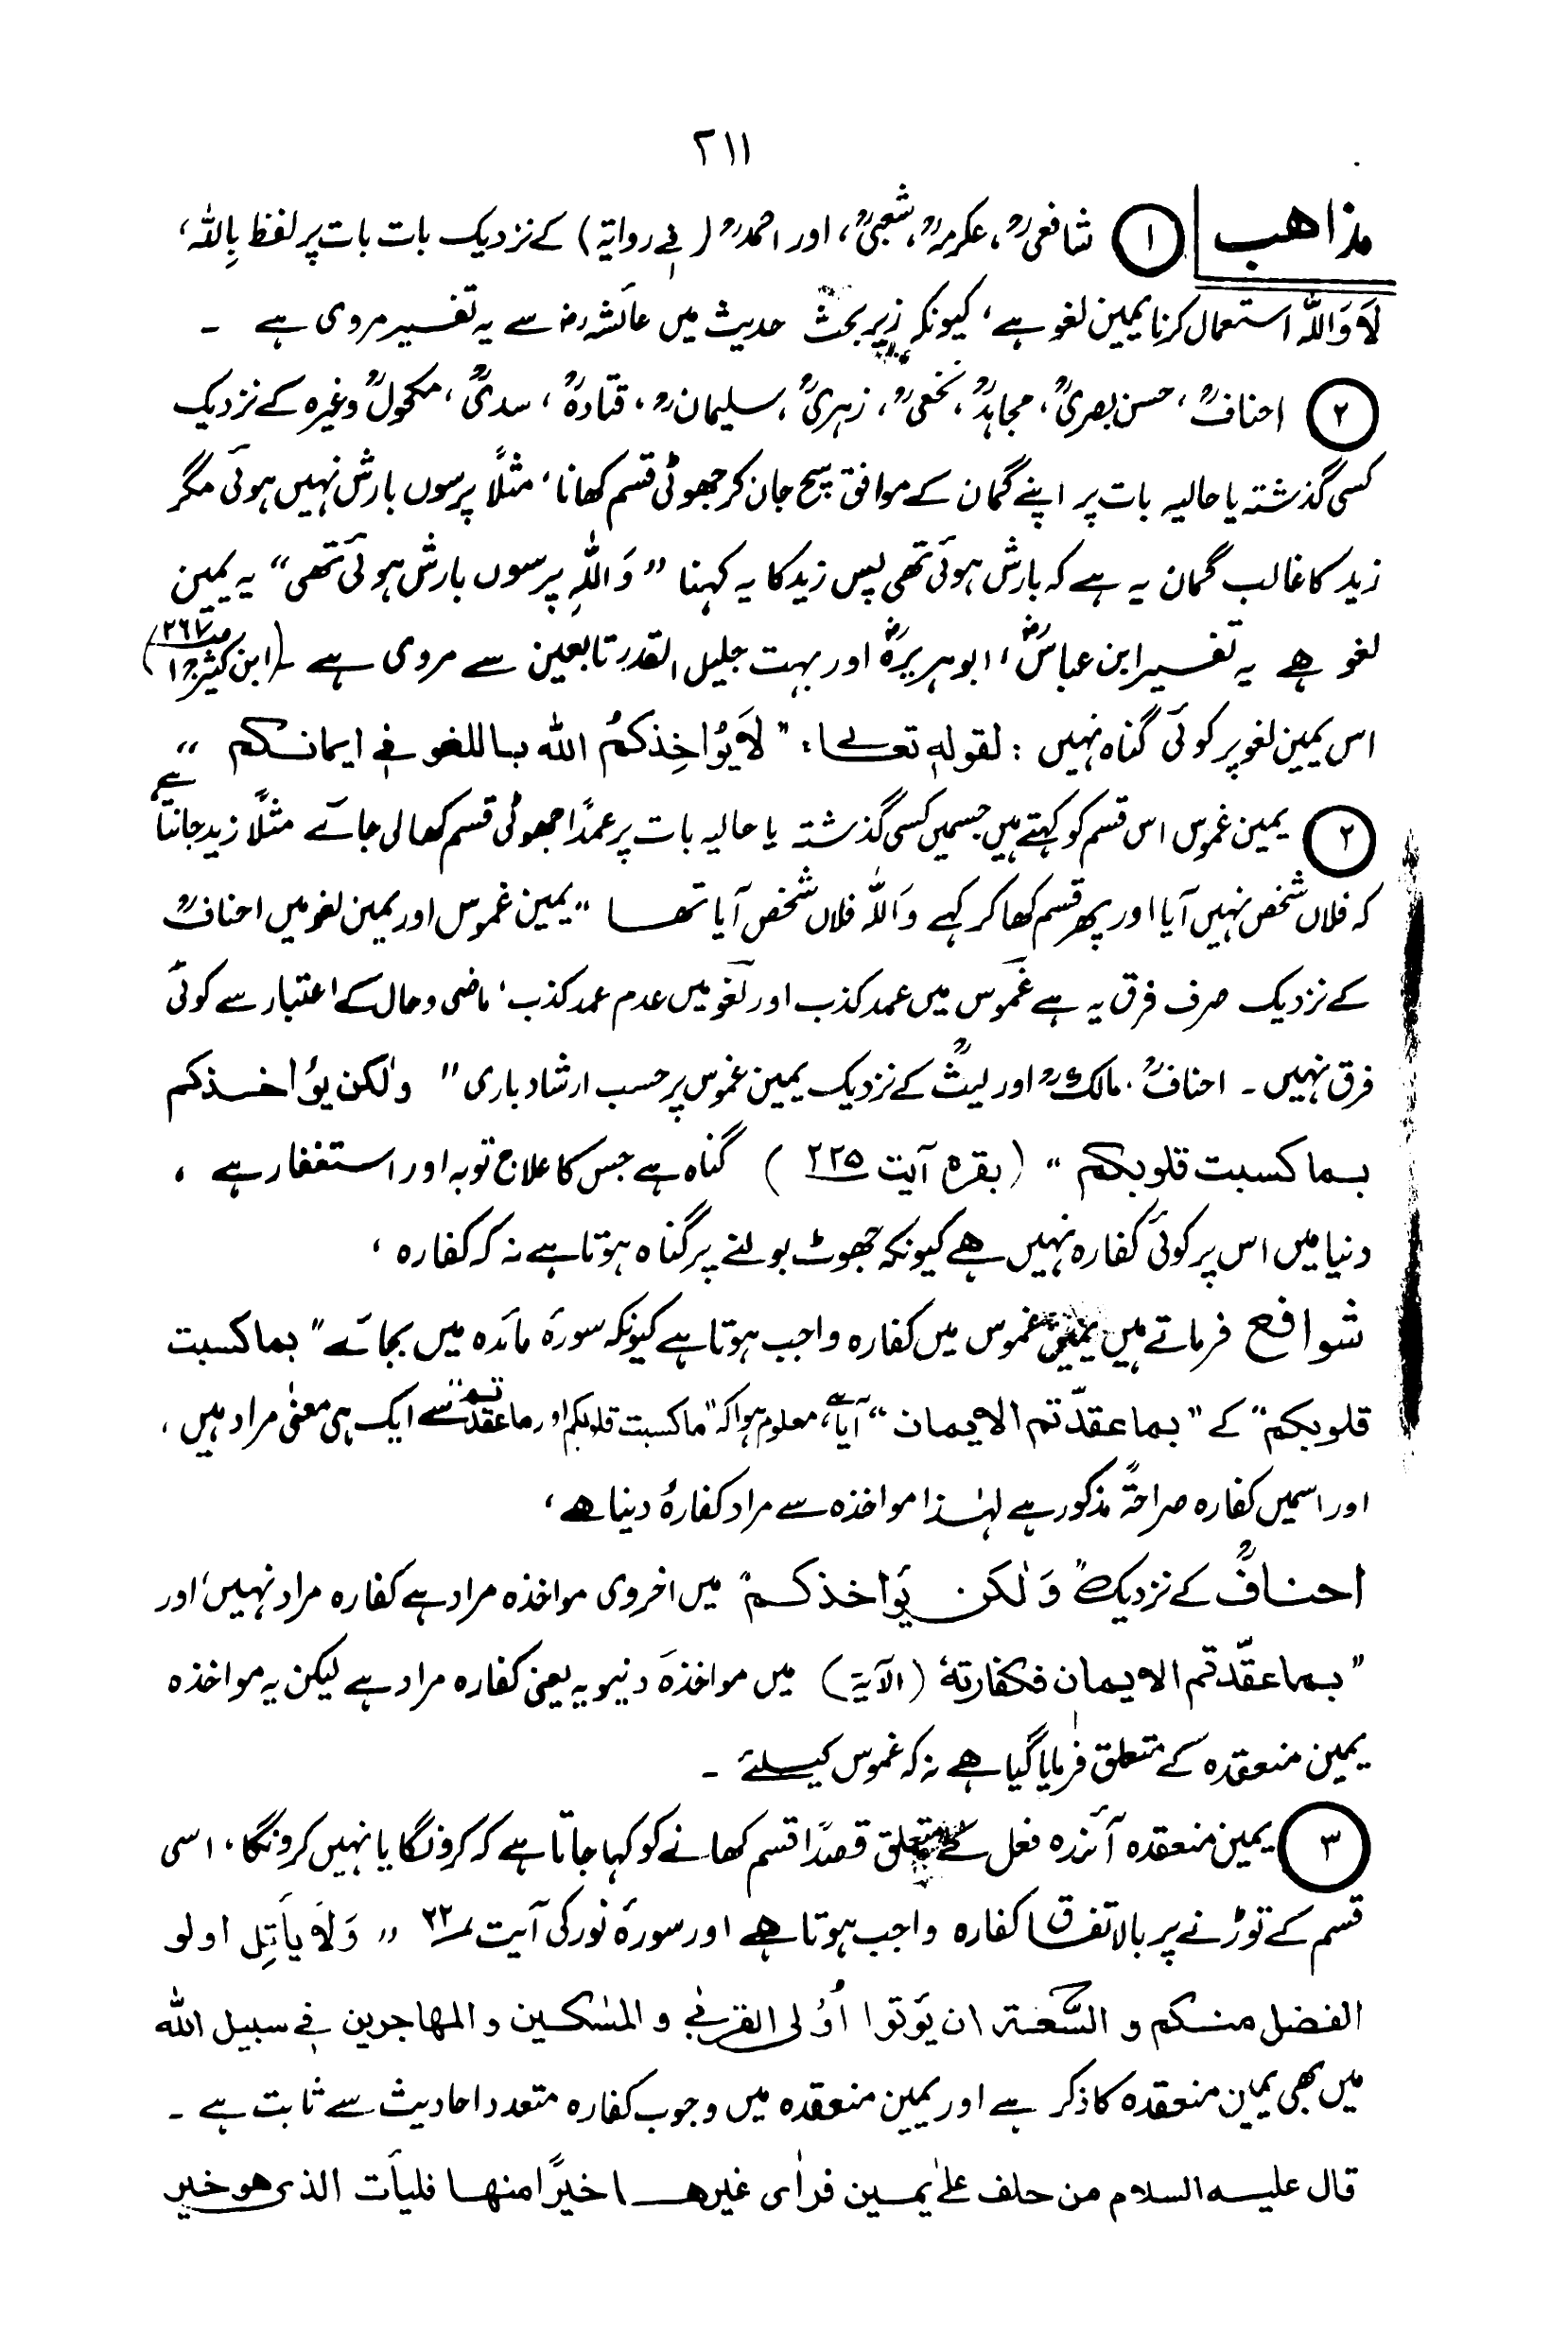 ۲۱۱
مذاھب ① شافعیؒ، عکرمہؒ، شعبیؒ، اور احمدؒ (فی روایۃ) کے نزدیک بات بات پر لفظ بِاللہ،
لَا وَاللہ استعمال کرنا یمین لغو ہے، کیونکہ زیر بحث حدیث میں عائشہ رضہ سے یہ تفسیر مروی ہے ۔
② احنافؒ، حسن بصریؒ، مجاہدؒ، نخعیؒ، زہریؒ، سلیمانؒ، قتادہؒ، سدیؒ، مکحولؒ وغیرہ کے نزدیک
کسی گذشتہ یا حالیہ بات پر اپنے گمان کے موافق سچ جان کر جھوٹی قسم کھانا، مثلاً پرسوں بارش نہیں ہوئی مگر
زید کا غالب گمان یہ ہے کہ بارش ہوئی تھی پس زید کا یہ کہنا ” وَاللہِ پرسوں بارش ہوئی تھی “ یہ یمین
لغو ہے یہ تفسیر ابن عباسؓ، ابوہریرہؓ اور بہت جلیل القدر تابعین سے مروی ہے ۔(ابن کثیر ج۱ صـ۲۶۷)
اس یمین لغو پر کوئی گناہ نہیں : لقولہٖ تعالےٰ، ” لَا یُؤاخِذکمُ اللہ باللغو فی ایمانکم “
② یمین غموس اس قسم کو کہتے ہیں جسمیں کسی گذشتہ یا حالیہ بات پر عمدًا جھوٹی قسم کھالی جائے مثلًا زید جانتا ہے
کہ فلاں شخص نہیں آیا اور پھر قسم کھا کر کہے وَاللہ فلاں شخص آیا تھا “ یمین غموس اور یمین لغو میں احنافؒ
کے نزدیک صرف فرق یہ ہے غموس میں عمد کذب اور لغو میں عدم عمد کذب، ماضی وحال کے اعتبار سے کوئی
فرق نہیں ۔ احنافؒ، مالکؒ اور لیثؒ کے نزدیک یمین غموس پر حسب ارشاد باری ” ولٰکن یؤاخذکم
بما کسبت قلوبکم “ (بقرہ آیت ۲۲۵) گناہ ہے جس کا علاج توبہ اور استغفار ہے ،
دنیا میں اس پر کوئی کفارہ نہیں ہے کیونکہ جھوٹ بولنے پر گناہ ہوتا ہے نہ کہ کفارہ ،
شوافع فرماتے ہیں یمین غموس میں کفارہ واجب ہوتا ہے کیونکہ سورۂ مائدہ میں بجائے ” بما کسبت
قلوبکم “ کے ” بما عقدّتم الایمان “ آیا ہے، معلوم ہوا کہ ” ما کسبت قلوبکم اور ما عقدتم “ سے ایک ہی معنٰی مراد ہیں ،
اور اسمیں کفارہ صراحۃً مذکور ہے لہٰذا مواخذہ سے مراد کفارۂ دنیا ہے ،
احنافؒ کے نزدیک ” وَلٰکن یؤاخذکم “ میں اخروی مواخذہ مراد ہے کفارہ مراد نہیں، اور
” بما عقّدتم الایمان فکفارتہٗ (الآیۃ) میں مواخذۂ دنیویہ یعنی کفارہ مراد ہے لیکن یہ مواخذہ
یمین منعقدہ کے متعلق فرمایا گیا ہے نہ کہ غموس کیلئے ۔
③ یمین منعقدہ آئندہ فعل کے متعلق قصدًا قسم کھانے کو کہا جاتا ہے کہ کرونگا یا نہیں کرونگا ، اسی
قسم کے توڑنے پر بالاتفاق کفارہ واجب ہوتا ہے اور سورۂ نور کی آیت ۲۲ ” وَلَا یأتِل اولو
الفضل منکم و السَّعۃ ان یؤتوا اُولی القربیٰ و المسٰکین و المہاجرین فی سبیل اللہ
میں بھی یمین منعقدہ کا ذکر ہے اور یمین منعقدہ میں وجوب کفارہ متعدد احادیث سے ثابت ہے ۔
قال علیہ السلام من حلف علیٰ یمین فراٰی غیرھا خیرًا منھا فلیأت الذی ھو خیر